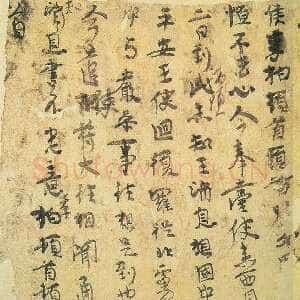 侯李柏頓首頓首
恒不去心今奉臺使来西月
二日到此海頭未知王消息想國中
平安王使迴復羅從北虜
中与嚴參事往想是到也
今遣使苻大往相聞通
消息書不悉意李柏頓首頓
首